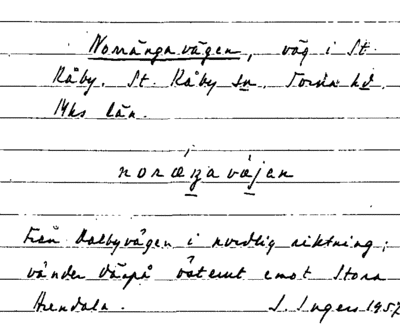 Norrängavägen, väg i St.
Råby. St. Råby sn. Torna hd.
Mhs län.
noræŋavæjen
Från Dalbyvägen i nordlig riktning;
vänder därpå österut emot Stora
Arendala. S. Ingers 1957